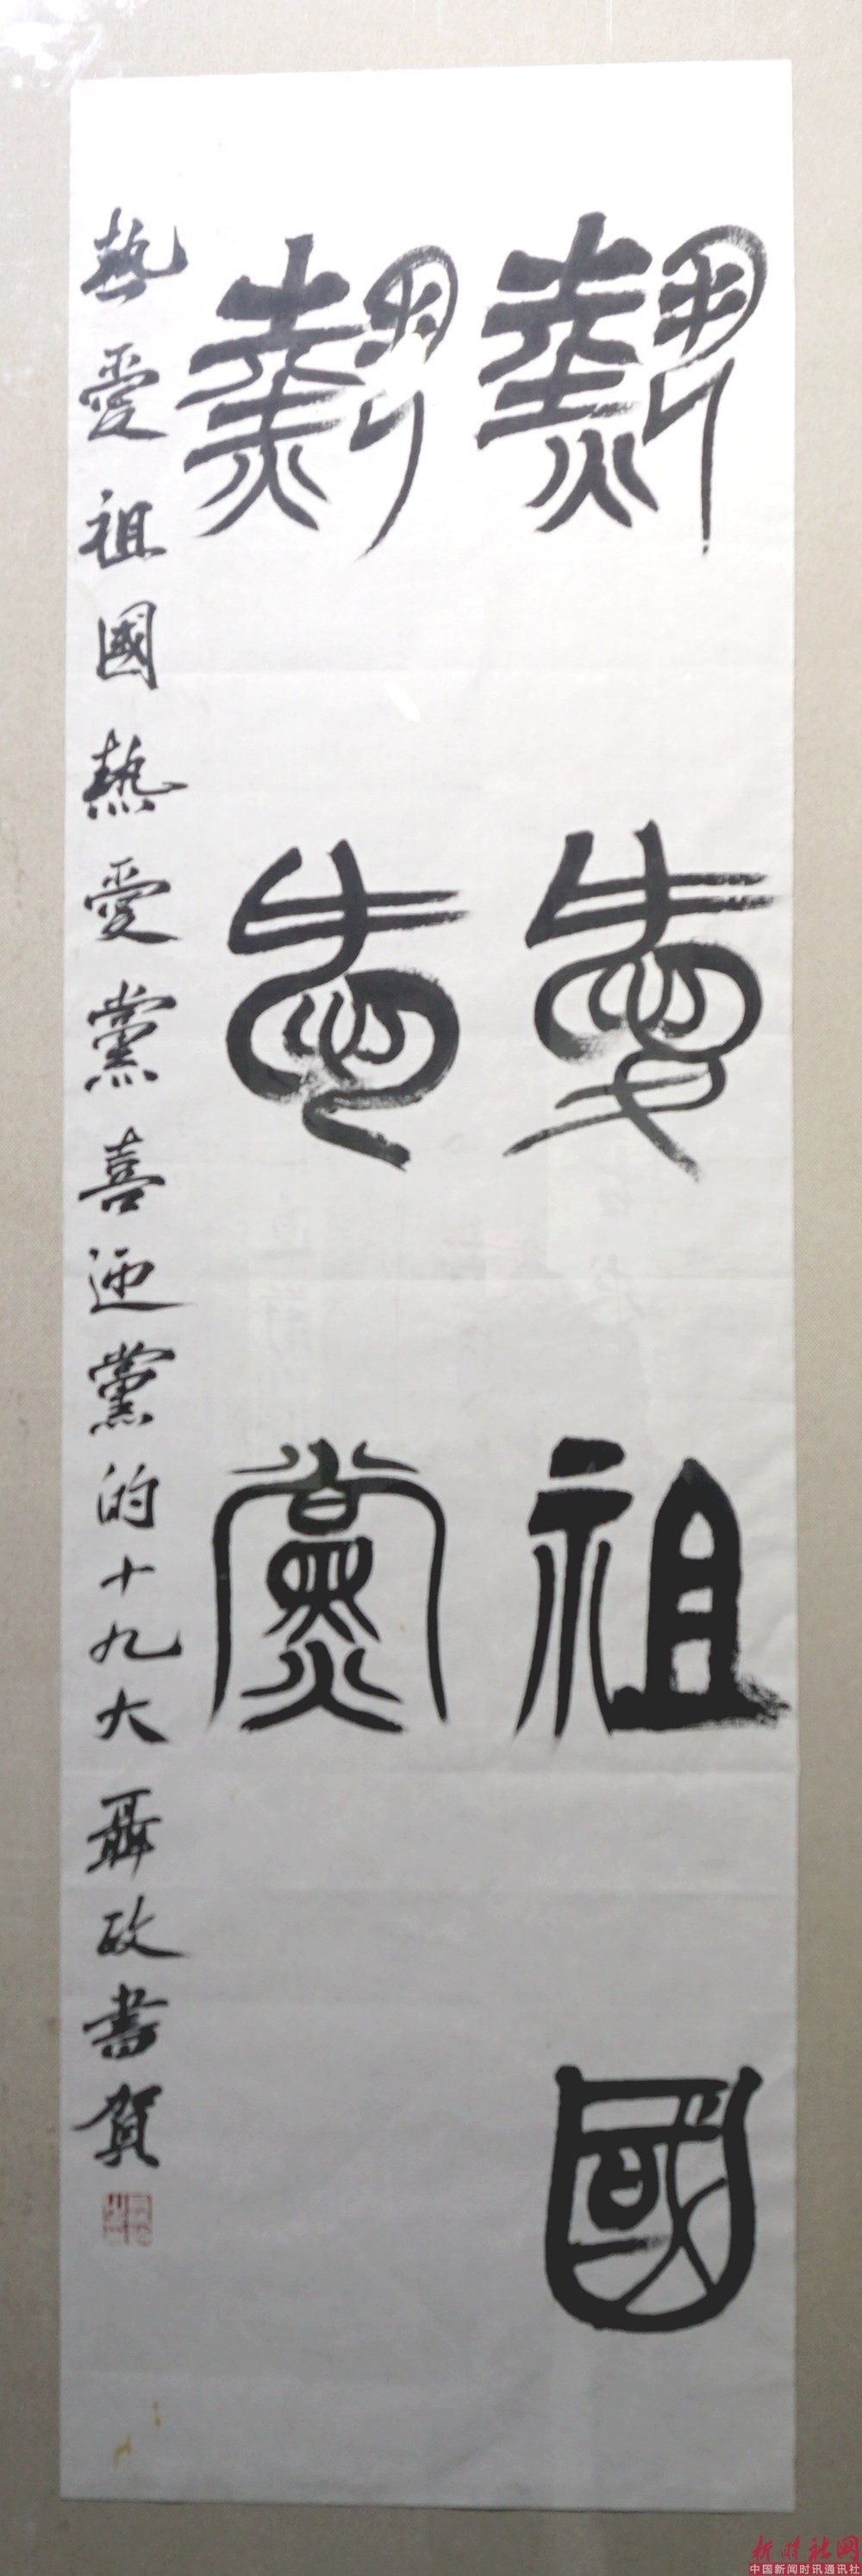 熱愛祖國
熱愛黨
熱愛祖國熱愛黨喜迎黨的十九大聶政書賀
新时社网
中国新闻时讯通讯社